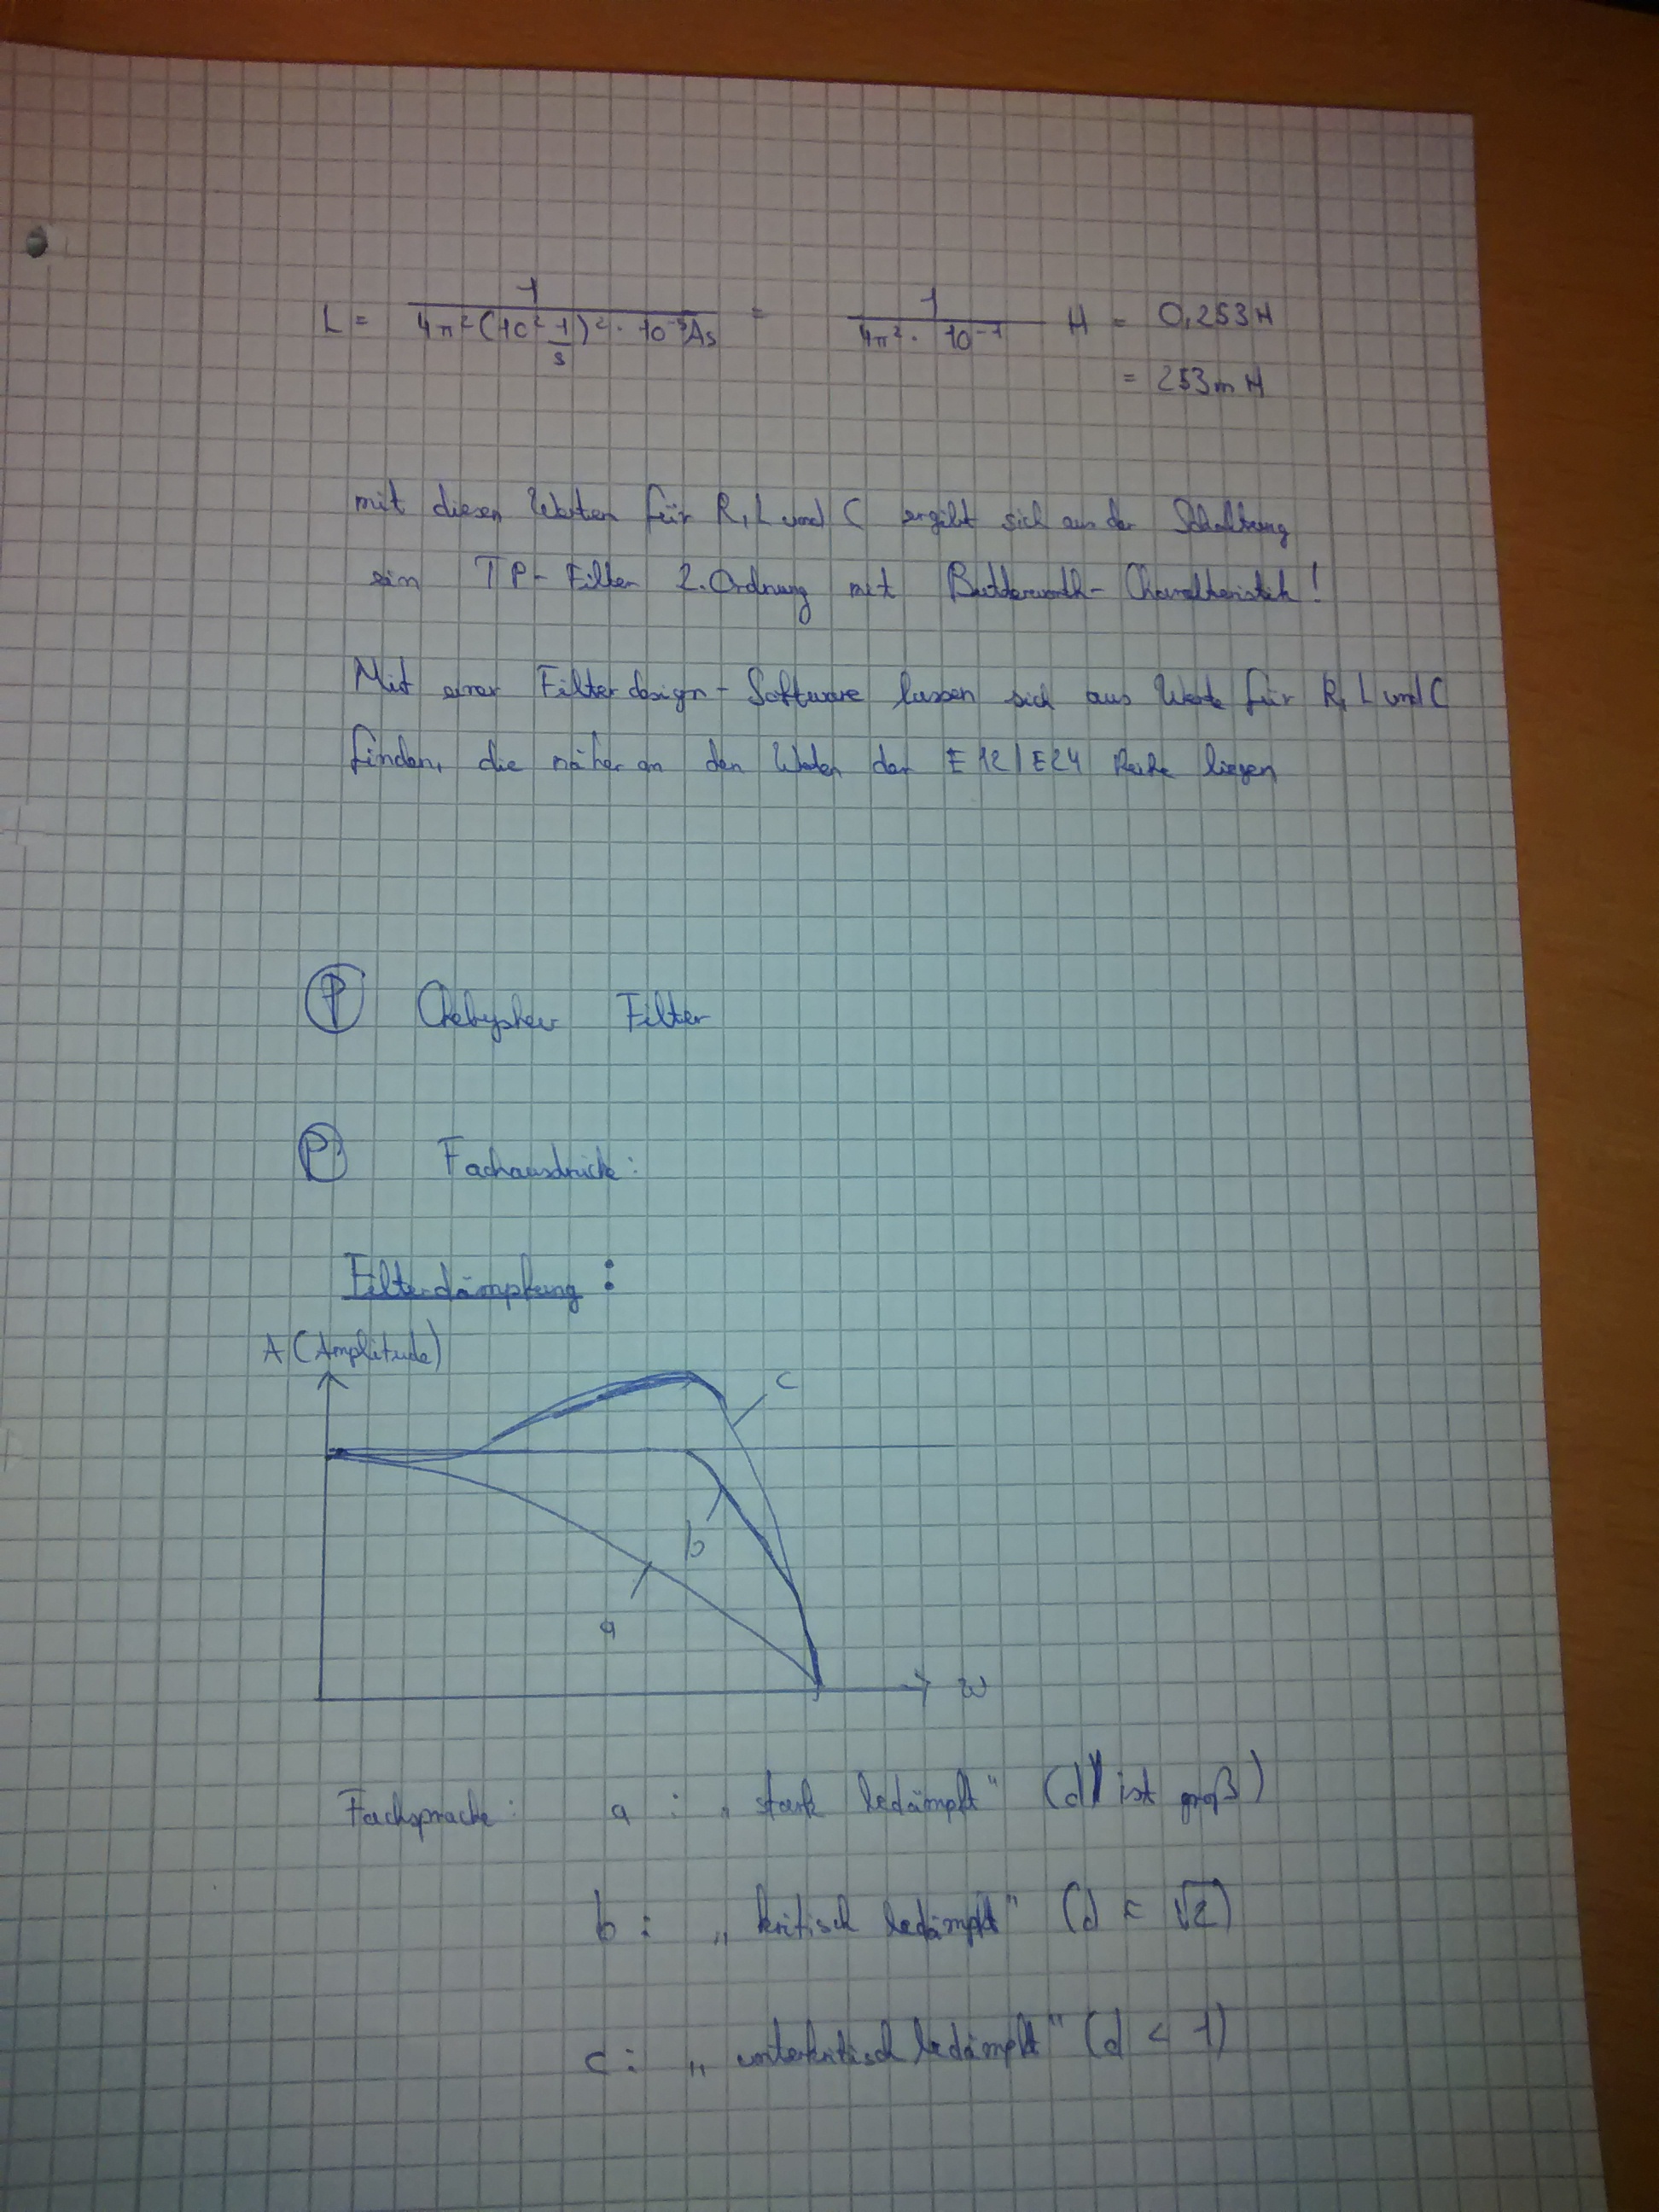 L = 1 / 4π²(10² 1/s)² · 10⁻⁵As = 1 / 4π² · 10⁻¹ H = 0,253H
= 253mH
mit diesen Werten für R, L und C ergibt sich aus der Schaltung
ein TP-Filter 2. Ordnung mit Butterworth-Charakteristik!
Mit einer Filterdesign-Software lassen sich aus Werte für R, L und C
finden, die näher an den Werten der E12/E24 Reihe liegen
P Chebyshev Filter
P Fachausdrücke:
Filterdämpfung:
A (Amplitude)
c
b
a
ω
Fachsprache: a : „stark bedämpft" (d ist groß)
b : „kritisch bedämpft" (d = √2)
c : „unterkritisch bedämpft" (d < 1)